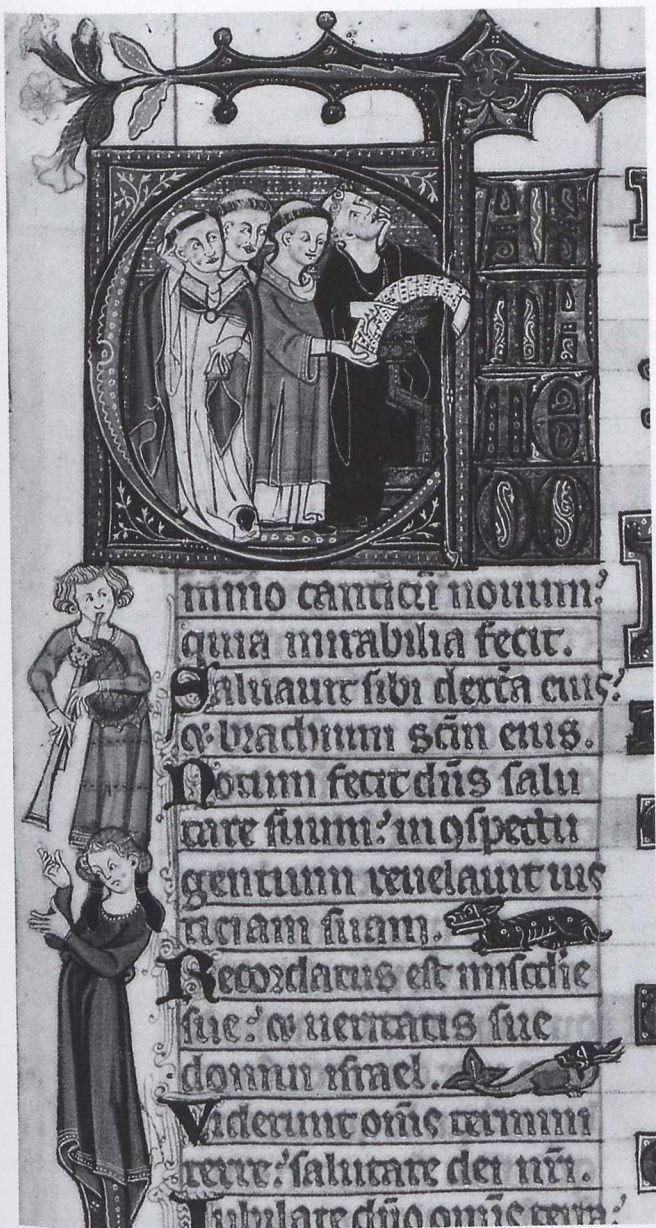 C AN
TA
TE
DO
mino canticū nouum:
quia mirabilia fecit.
Saluauit sibi dext̄a eius:
& brachium sc̄m eius.
Notum fecit dn̄s salu
tare suum: in ꝯspectu
gentium reuelauit ius
ticiam suam.
Recordatus est mis̄cdie
sue: & ueritatis sue
domui israel.
Viderunt om̄s termini
terre: salutare dei nr̄i.
Iubilate dn̄o omīs terra: